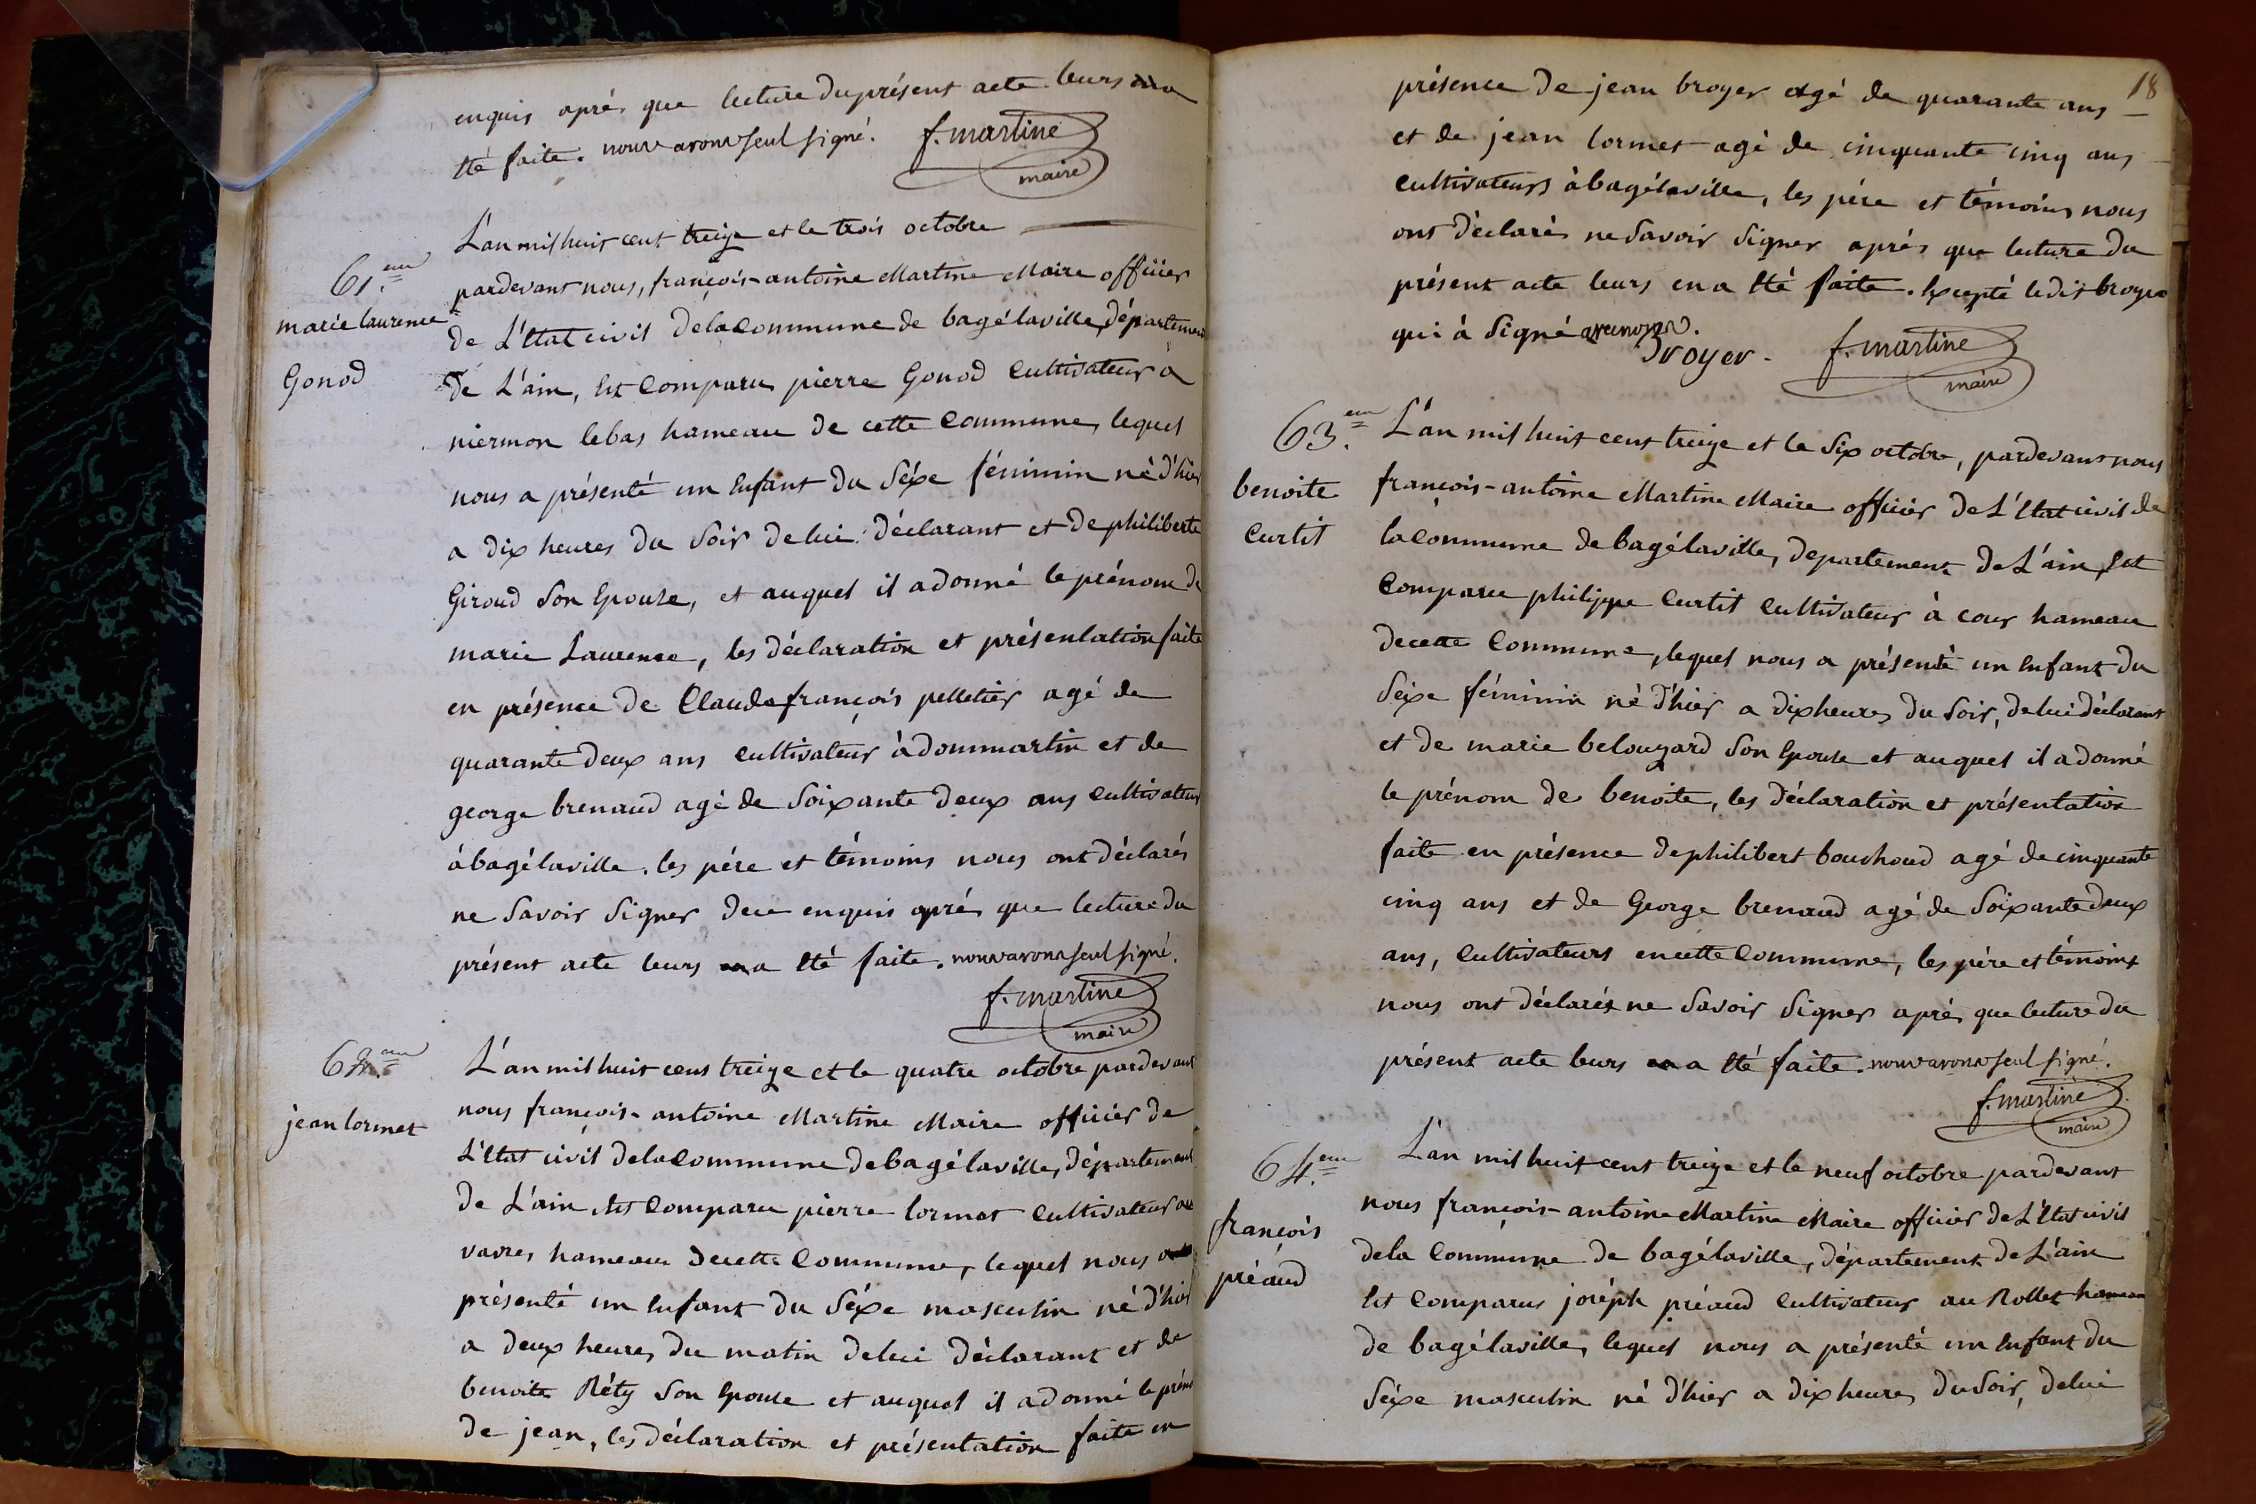 enquis aprés que lecture du présent acte leurs en a
été faite. nous avons seul signé. f. martine
maire
61.eme
marie laurence
Gonod
L'an mil huit cent treize et le trois octobre
pardevant nous, françois-antoine Martine Maire officier
de L'Etat civil de la Commune de bagélaville, département
de L'ain, Est Comparu pierre Gonod Cultivateur à
niermon lebas hameau de cette Commune, lequel
nous a présenté un Enfant du Séxe féminin né d'hier
a dix heures du Soir de lui déclarant et de philiberte
Giroud Son Epouse, et auquel il a donné le prénom de
marie Laurence, les déclaration et présentation faite
en présence de Claude françois pelletier agé de
quarante deux ans Cultivateur à dommartin et de
george brenaud agé de Soixante deux ans Cultivateur
à bagélaville. les pére et témoins nous ont déclarés
ne Savoir Signer de ce enquis aprés que lecture du
présent acte leurs en a été faite. nous avons seul signé.
f. martine
maire
62.eme
jean lormet
L'an mil huit cens treize et le quatre octobre pardevant
nous françois-antoine Martine Maire officier de
L'Etat civil de la Commune de bagélaville, département
de L'ain, Est Comparu pierre lormet Cultivateur au
vavres hameau de cette Commune, lequel nous a
présenté un Enfant du Séxe masculin né d'hier
a deux heures du matin de lui déclarant et de
benoite Réty Son Epouse et auquel il a donné le prénom
de jean, les déclaration et présentation faite en
18
présence de jean broyer agé de quarante ans
et de jean lormet agé de cinquante cinq ans
Cultivateurs à bagélaville, les pére et témoins nous
ont déclarés ne Savoir Signer aprés que lecture du
présent acte leurs en a été faite. Excepté ledit broyer
qui à Signé avec nous.
Broyer. f. martine
maire
63.eme
benoite
Curtit
L'an mil huit cent treize et le Six octobre, pardevant nous
françois-antoine Martine Maire officier de L'Etat civil de
la Commune de bagélaville, departement de L'ain, Est
Comparu philippe Curtit Cultivateur à cour hameau
de cette Commune, lequel nous a présenté un Enfant du
Séxe féminin né d'hier a dix heures du Soir, de lui déclarant
et de marie belouzard Son Epouse et auquel il a donné
le prénom de benoite, les déclaration et présentation
faite en présence de philibert bouchoud agé de cinquante
cinq ans et de George brenaud agé de Soixante deux
ans, Cultivateurs en cette Commune, les pére et témoins
nous ont déclarés ne Savoir Signer aprés que lecture du
présent acte leurs en a été faite. nous avons seul signé.
f. martine
maire
64.eme
françois
préaud
L'an mil huit cent treize et le neuf octobre pardevant
nous françois-antoine Martine Maire officier de L'Etat civil
de la Commune de bagélaville, département de L'ain
Est Comparus joséph préaud Cultivateur au Rollet hameau
de bagélaville, lequel nous a présenté un Enfant du
Séxe masculin né d'hier a dix heures du Soir, de lui